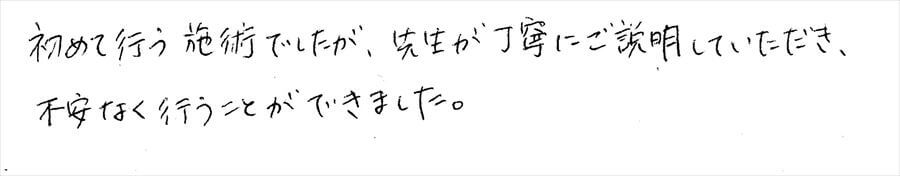 初めて行う施術でしたが、先生が丁寧にご説明していただき、
不安なく行うことができました。